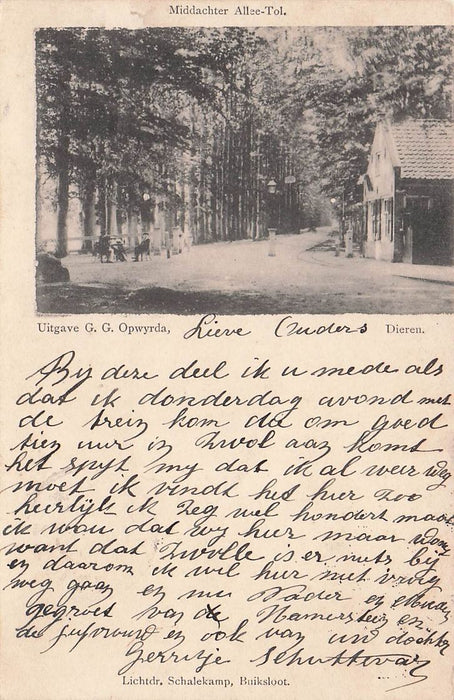 Middachter Allee-Tol.
Uitgave G. G. Opwyrda,
Lieve Ouders
Dieren.
By deze deel ik u mede als
dat ik donderdag avond met
de trein kom die om goed
tien uur in Zwol aan komt
het spyt my dat ik al weer weg
moet ik vindt het hier zoo
heerlijk ik zeg wel hondert maal
ik wou dat wy hier maar
want dat Zwolle is er niets bij
en daarom ik wil hier niet vroeg
weg gaan en nu Vader en Moeder
gegroet van de en
de en ook van uw dochter
Gerritje
Lichtdr. Schalekamp, Buiksloot.